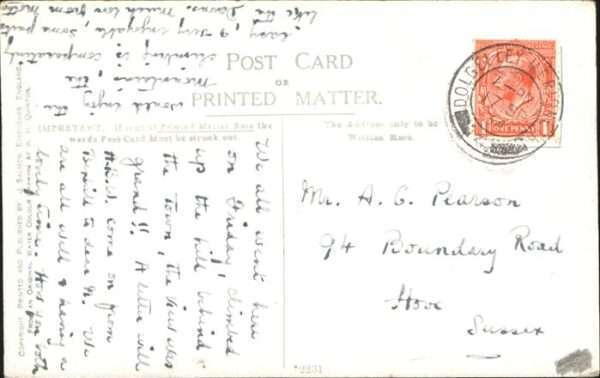 POST CARD
OR
PRINTED MATTER.
IMPORTANT. If used at Printed Matter Rate the
words Post Card Must be struck out.
The Address only to be
Written Here.
We all went here
on Friday, climbed
up the hill behind
the town, the view was
grand!! A letter will
come on from
to dear N. We
are all well & having a
lovely time. Hope you both
would enjoy the
Mountains, the
climbing is comparatively
easy, & very enjoyable, some parts
like the Downs. Much love from
Mr. A. C. Pearson
94 Boundary Road
Hove
Sussex
DOLGELLEY
ONE PENNY
COPYRIGHT. PRINTED AND PUBLISHED BY J. SALMON, SEVENOAKS, ENGLAND.
FROM AN ORIGINAL WATER COLOUR DRAWING BY A. R. QUINTON.
*2231